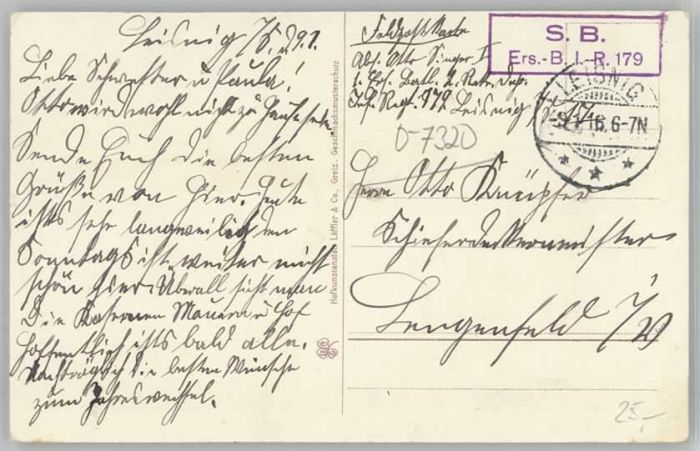 Leisnig i/S. d. 9.1.
Liebe Schwester u Paula!
Otto wird wohl nicht zu Hause sein
Sende Euch die besten
Grüße von hier. Heute
ists sehr langweilig den
Sonntags ist weiter nicht
schön hier. Überall sieht man
die Kasernen Mauern u Hof
hoffentlich ists bald alle.
Nachträglich die besten Wünsche
zum Jahreswechsel.
Hofkunstanstalt Löffler & Co., Greiz. Geschmacksmusterschutz
Feldpostkarte
Abs. Otto Singer I
1. Ers. Batl. 2. Rekr. Dep.
Inf. Regt. 179 Leisnig i/S.
S. B.
Ers.-B. J.-R. 179
LEISNIG
9.1.16. 6-7N
D-7320
Herrn Otto Knüpfer
Schieferdeckermeister
Lengenfeld i/V
25,-